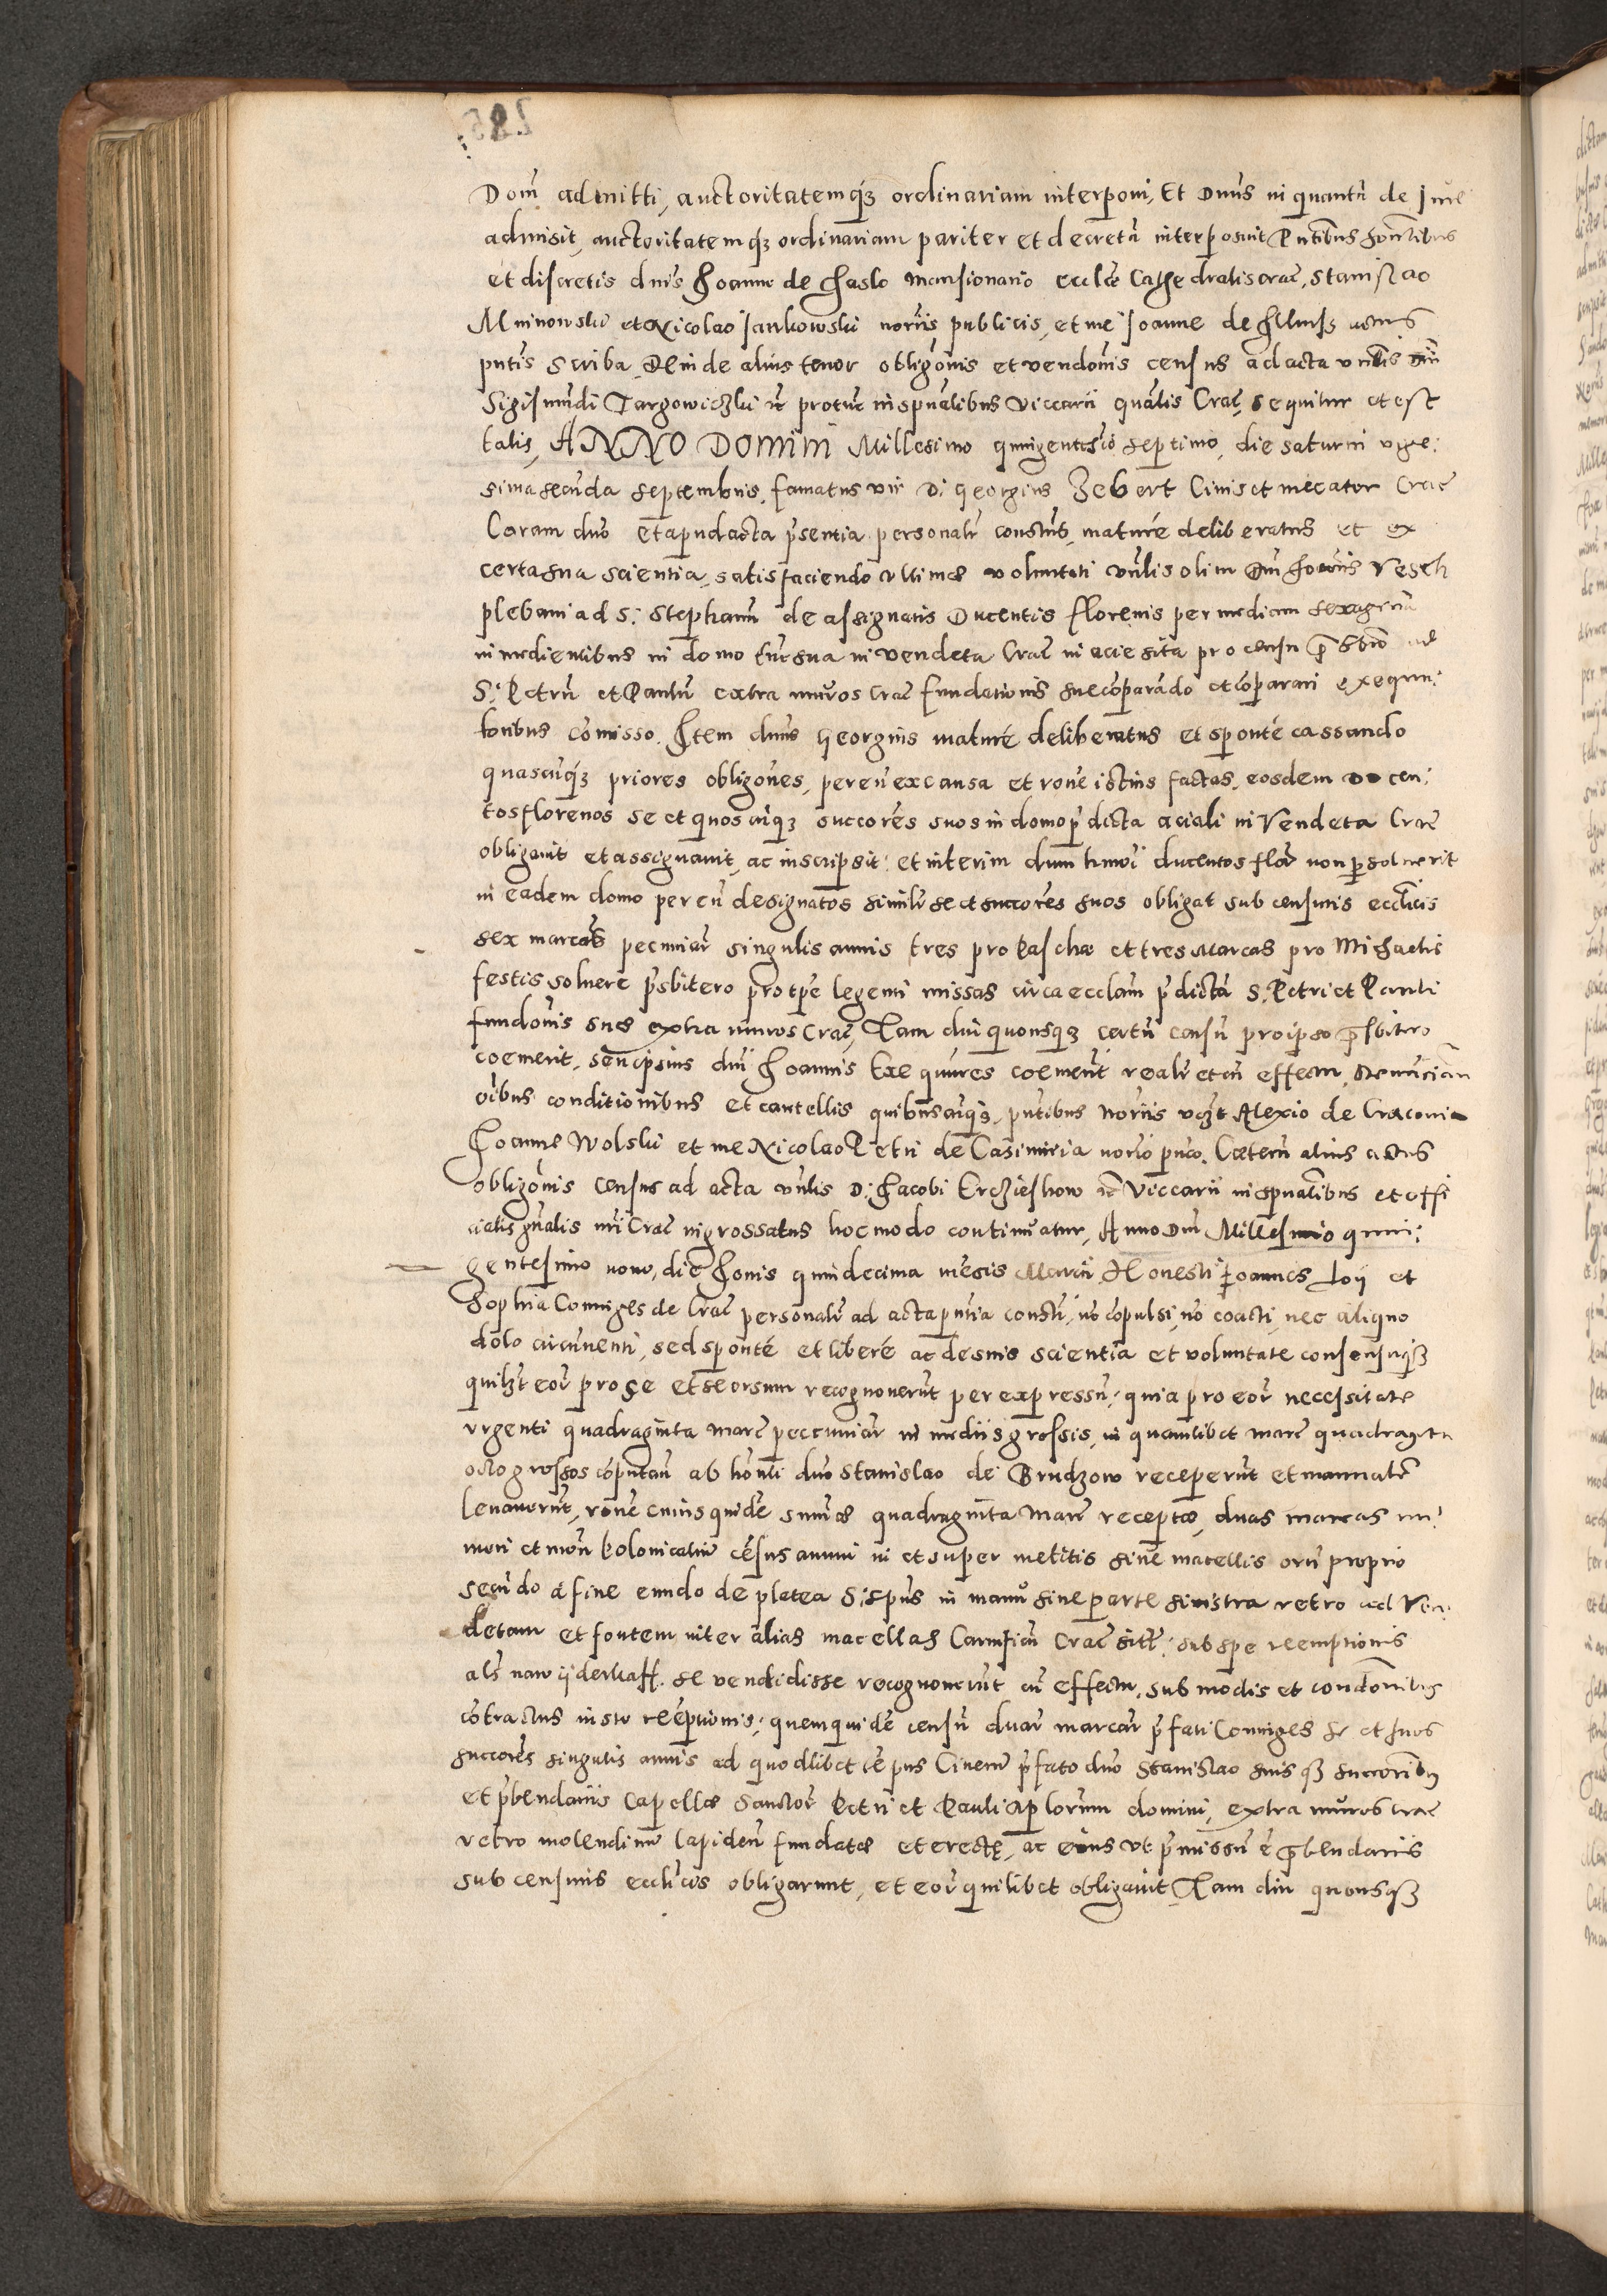 Dom̃ admitti, auctoritatemq́ꝫ ordinariam interponi, Et Dnus in quantũ de Jure
admisit, auctoritatemqꝫ ordinariam pariter et decretũ interposuit Pñtibus honĩlibus
et discretis dnis Joanne de Jaslo Mansionario eccl̃æ Cathedralis Crac̃, Stanislao
Mninowski et Nicolao Jankowski nor̃iis publicis, et me Joanne de actus
pñtis scriba, Deinde alius tenor obligõnis et vendõnis census ad acta vñlis
Sigismũdi Targowiczki ñc protũc in spũalibus viccarii gñalis Crac̃, sequitur et est
talis, ANNO DOMINI Millesimo quingentesiõ septimo, die saturni vige:
sima secũda septembris, famatus vir D: Georgius Zebert Civis et mẽcator Crac̃
Coram dño et apud acta p̃sentia personalr̃ constits, maturé deliberatus et ex
certa sua scientia, satisfaciendo ultimæ voluntati vñlis olim dñi Joãnis Resch
plebani ad S: Stephanũ de assignatis Ducentis florenis per mediam sexagenã
in medietatibus in domo tũc sua in vendeta Crac̃ in acie sita pro censu p̃sbiõ ad
S: Petrũ et Paulũ extra muros Crac̃ fundationis suæ cõparãdo et cõparari exequu:
toribus cõmisso. Item dñus Georgius maturé deliberatus et sponté cassando
quascũq́ꝫ priores obligões, per eũ ex causa et rõne istius factas, eosdem ducen:
tos florenos se et quoscũqꝫ succores suos in domo p̃dicta aciali in Vendeta Crac̃
obligavit et assignavit, ac inscripsit: et interim dum hm̃õi ducentos flor̃ non p̱solverit
in eadem domo per eũ designatos similr̃ se et succores suos obligat sub censuris eccl̃icis
sex marcas pecuniar̃ singulis annis tres pro Paschæ et tres Marcas pro Michaelis
festis solvere p̃sbitero pro tp̃e legenti missas circa eccl̃am p̃dictã S: Petri et Pauli
fundõnis suæ extra muros Crac̃, Tam diu quousqꝫ certũ censũ pro ipso p̃sbitero
coemerit, seu ipsius dñi Joannis Exequũres coemerit realr̃ et cũ effectu, Renũciãn
oĩbus conditionibus et cautellis quibuscũqꝫ, pñtibus Nor̃iis vcꝫt Alexio de Cracovia
Joanne Wolski et me Nicolao Petri de Casimiria nor̃io puco. Cæterũ alius actus
obligõnis census ad acta vñlis D: Jacobi Erczieshow ñc Viccarii in spũalibus et offi
cialis gñalis nr̃i Crac̃ ingrossatus hoc modo continuatur, Anno Dñi Millesimo quin:
gentesimo nono, die Jovis quindecima mẽsis Marcii, Honesti Joannes Loy et
Sophia Coniuges de Crac̃ personalr̃ ad acta pñtia constti, nõ cõpulsi, nõ coacti, nec aliquo
dolo circũventi, sed sponté et liberé ac de suis scientia et voluntate consensuqꝫ
quilꝫt eor̃ pro se et seorsum recognoverũt per expressũ: quia pro eor̃ necessitate
urgenti quadraginta marc̃ peccuniar̃ in mediis grossis, in quamlibet marc̃ quadraginta
octo grossos cõputan̄ ab hõnli dño Stanislao de Brudzow receperũt et manualr̃
levaverũt, rõne cuius quidẽ sum̃æ quadraginta marc̃ receptæ, duas marcas nu:
meri et mon̄ Polonicaliũ cẽsus annui in et super metitis sive macellis eor̃ proprio
secũdo a fine eundo de platea S: Spũs in manu sive parte sinistra retro ad Ven:
detam et fontem inter alias macellas Carnificũ Crac̃ sitt̃: sub spe reemptionis
al̃s naw ijderkaff se vendidisse recognoverũt cũ effectu, sub modis et condõnibus
cõtractus iusto reẽptionis: quemquidẽ censũ duar̃ marcar̃ p̃fati Coniuges se et suos
succores singulis annis ad quodlibet tẽpus Cinerũ p̃fato dño Stanislao suisqꝫ succoribꝫ
et p̃bendariis Capellæ Sanctor̃ Petri et Pauli Ap̃lorum domini, extra muros Crac̃
retro molendinũ lapideũ fundatæ et erectę, ac eius ut p̃missũ ẽ p̃bendariis
sub censuris eccl̃icis obligarunt, et eor̃ quilibet obligavit, Tam diu quousqꝫ